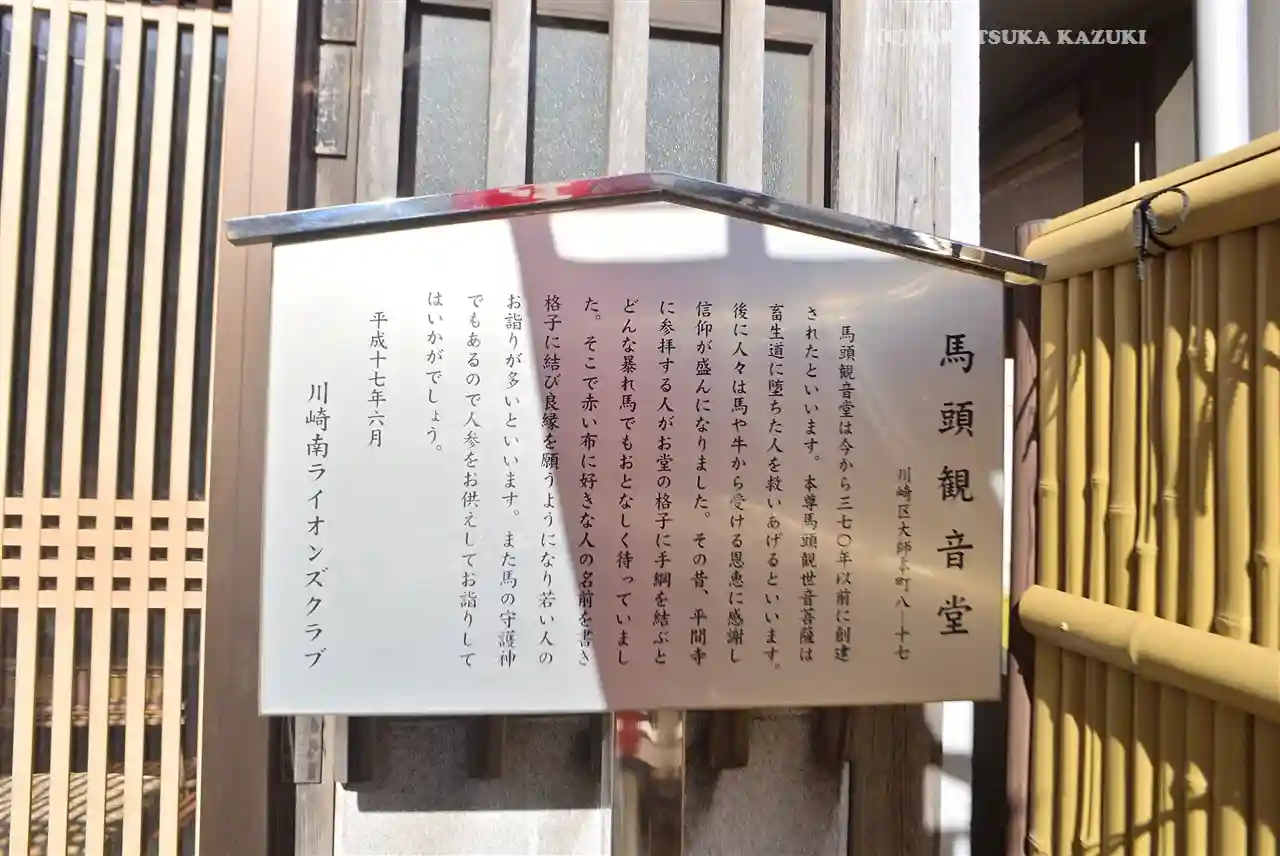 馬頭観音堂
川崎区大師本町八―十七
馬頭観音堂は今から三七〇年以前に創建
されたといいます。本尊馬頭観世音菩薩は
畜生道に堕ちた人を救いあげるといいます。
後に人々は馬や牛から受ける恩恵に感謝し
信仰が盛んになりました。その昔、平間寺
に参拝する人がお堂の格子に手綱を結ぶと
どんな暴れ馬でもおとなしく待っていまし
た。そこで赤い布に好きな人の名前を書き
格子に結び良縁を願うようになり若い人の
お詣りが多いといいます。また馬の守護神
でもあるので人参をお供えしてお詣りして
はいかがでしょう。
平成十七年六月
川崎南ライオンズクラブ
KAZUKI